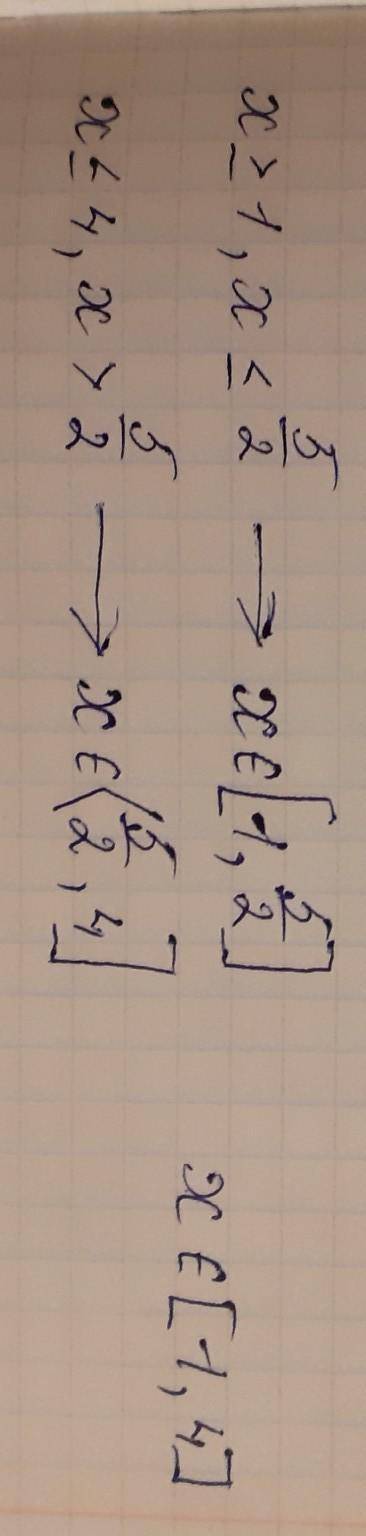 x ≥ 1, x ≤ 5/2 → x ∈ [1, 5/2]
x ≤ 4, x > 5/2 → x ∈ ⟨5/2, 4]
x ∈ [1, 4]